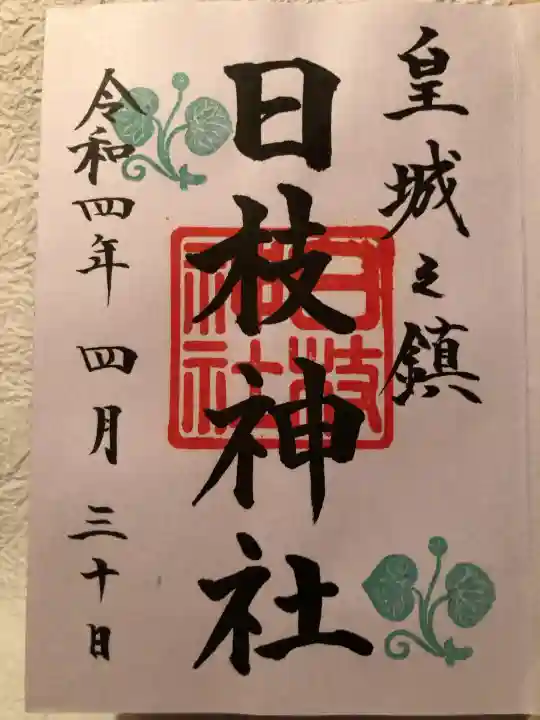 皇城之鎮
日枝神社
日枝神社
令和四年四月三十日